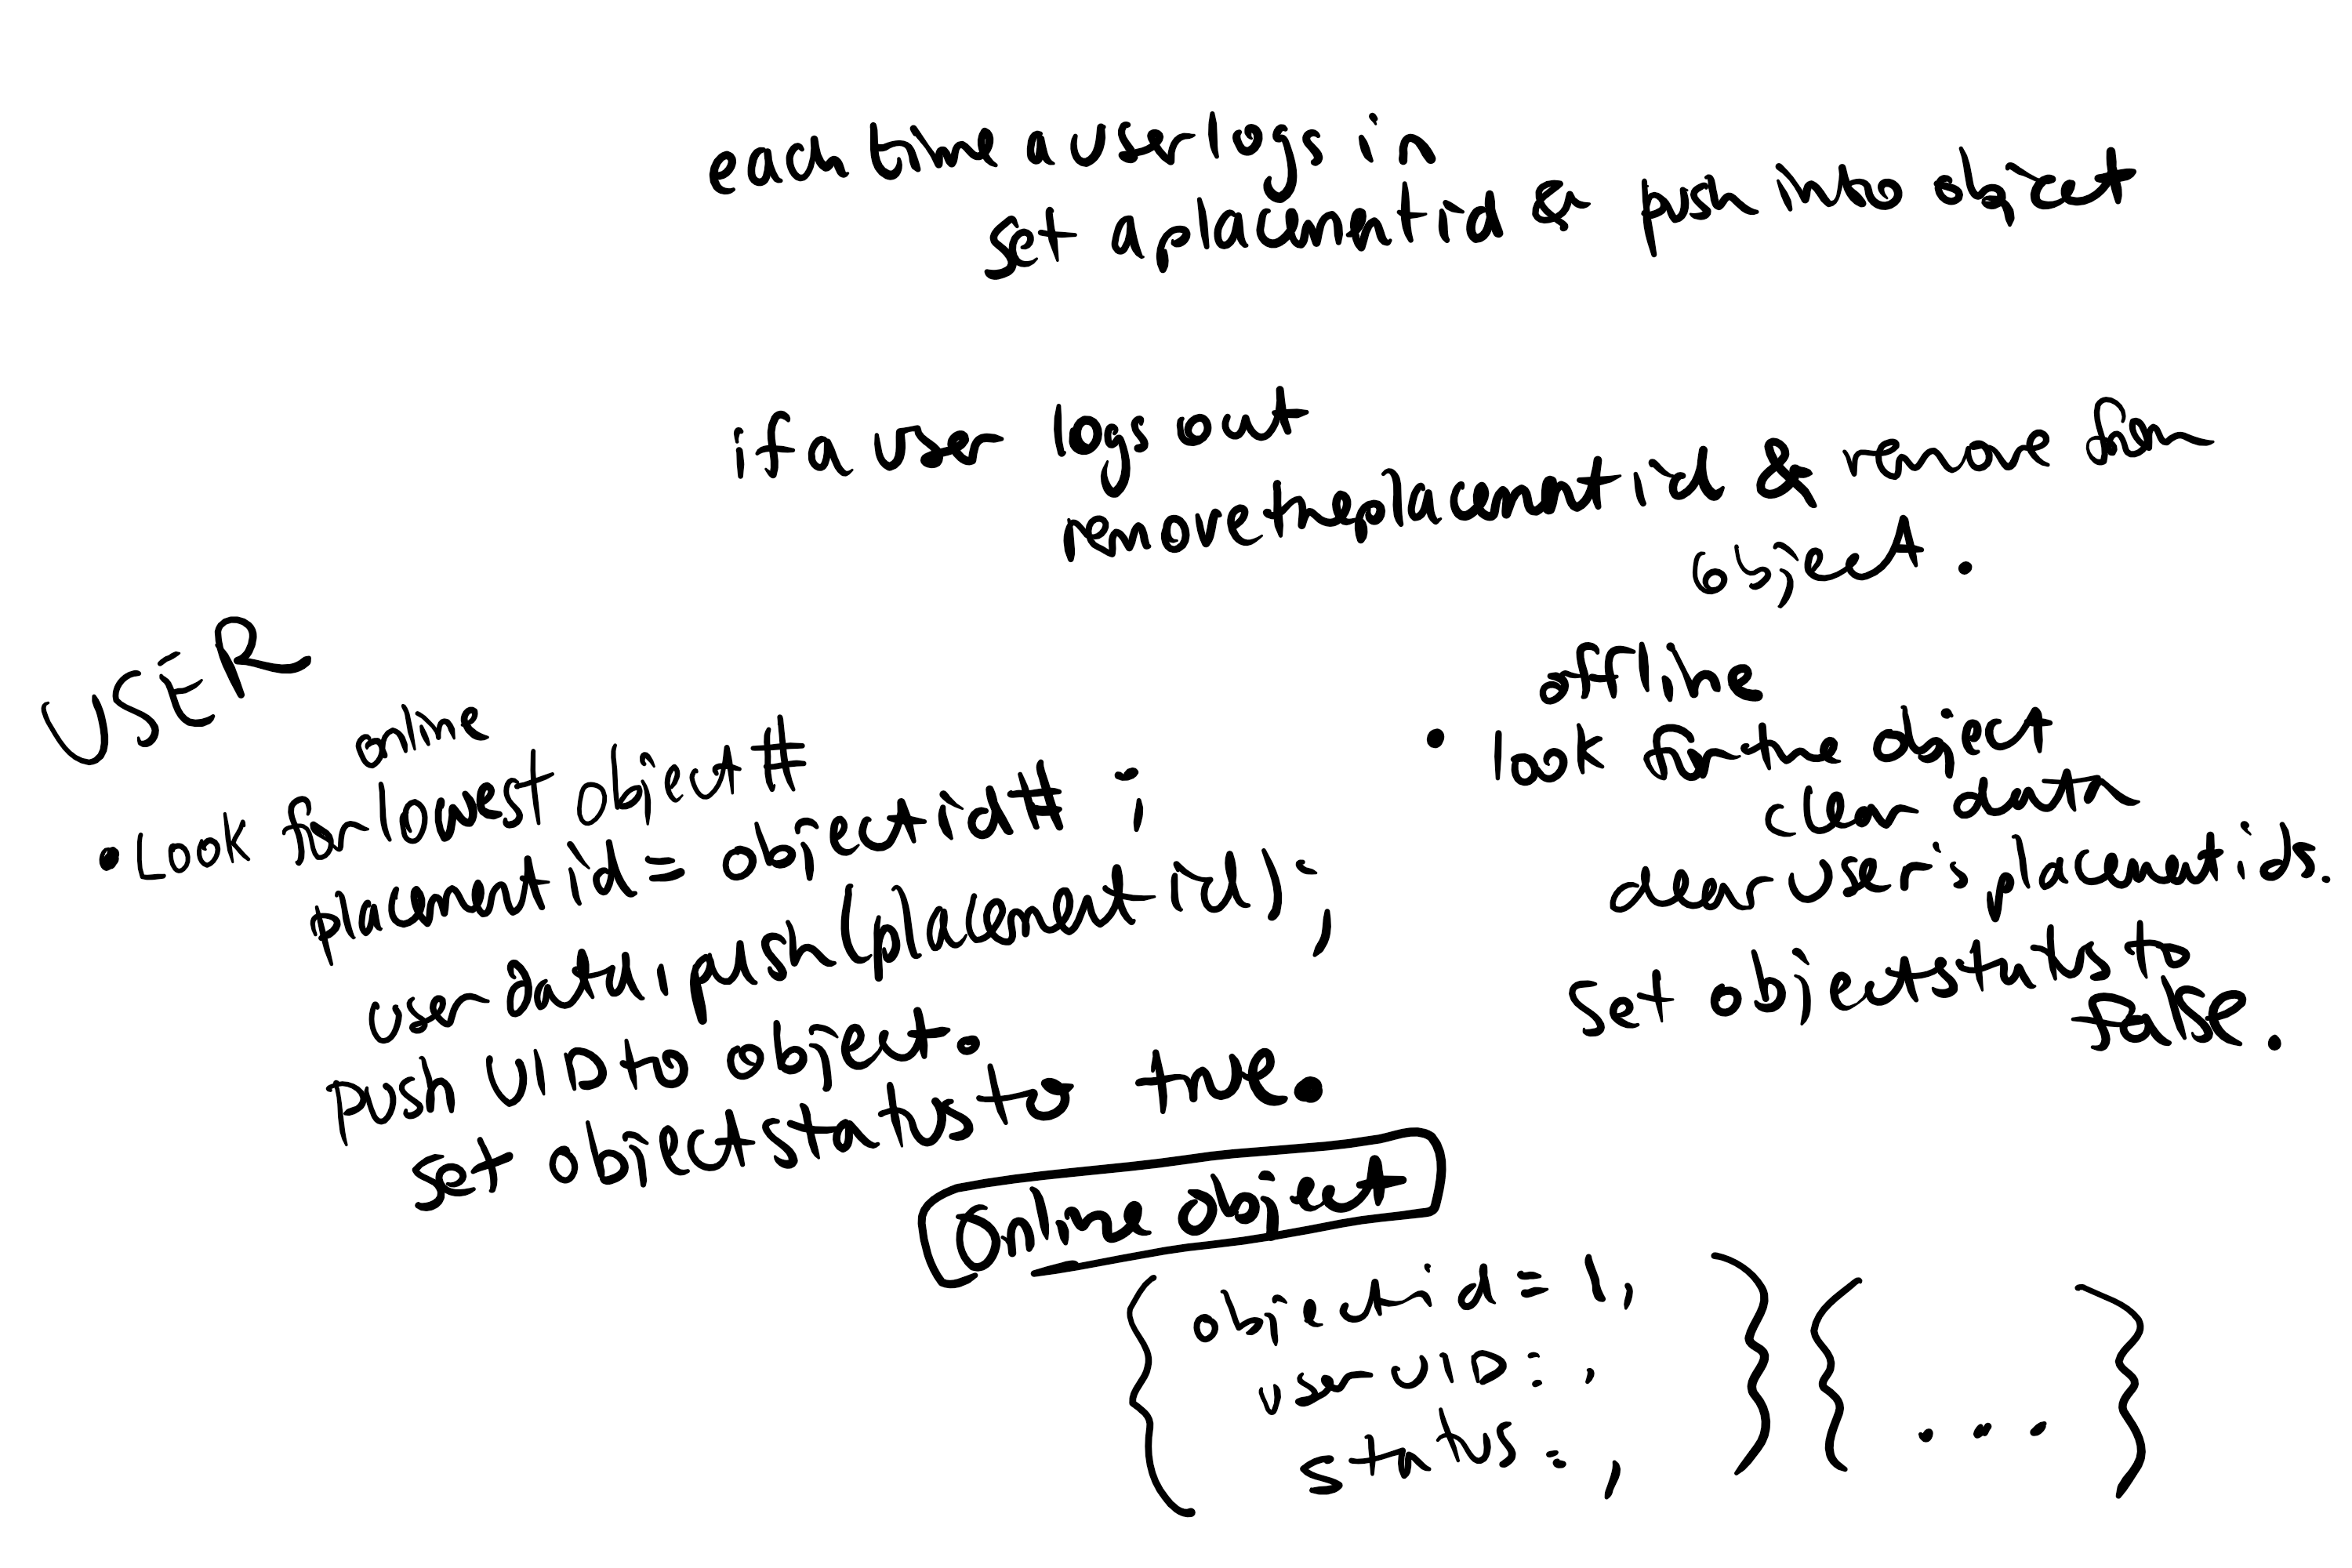 each time a user logs in
set a placement id & push into object
if a user logs out
remove the placement id & remove from
object.
USER
online
• look for lowest object #
placement id = object id # ;
user data . push (placement id) ;
push UID to object.
set object status to true.
offline
• look for the object
clear data
clear user's placement id.
set object status to
false.
Online object
{ object id = 1, } { ... }
user UID: ,
status: ,